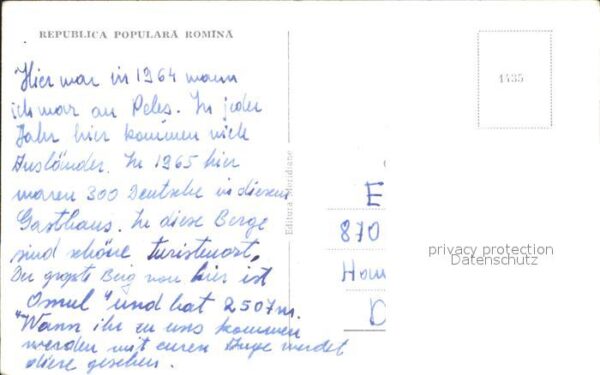 REPUBLICA POPULARĂ ROMÎNĂ
Hier war in 1964 wann
ich war an Peles. In jeder
Jahr hier kommen viele
Ausländer. In 1965 hier
waren 300 Deutsche in diesem
Gasthaus. In diese Berge
sind schöne turistenort,
Der gropte Berg von hier ist
"Omul" und hat 2507 m.
Wann ihr zu uns kommen
werden mit euren Auge werdet
diese gesehen.
Editura Meridiane
1435
E
870
Hom
D
privacy protection
Datenschutz